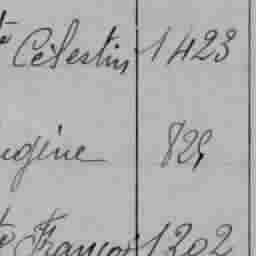 te Célestin 1423
ugène 829
te François 1202